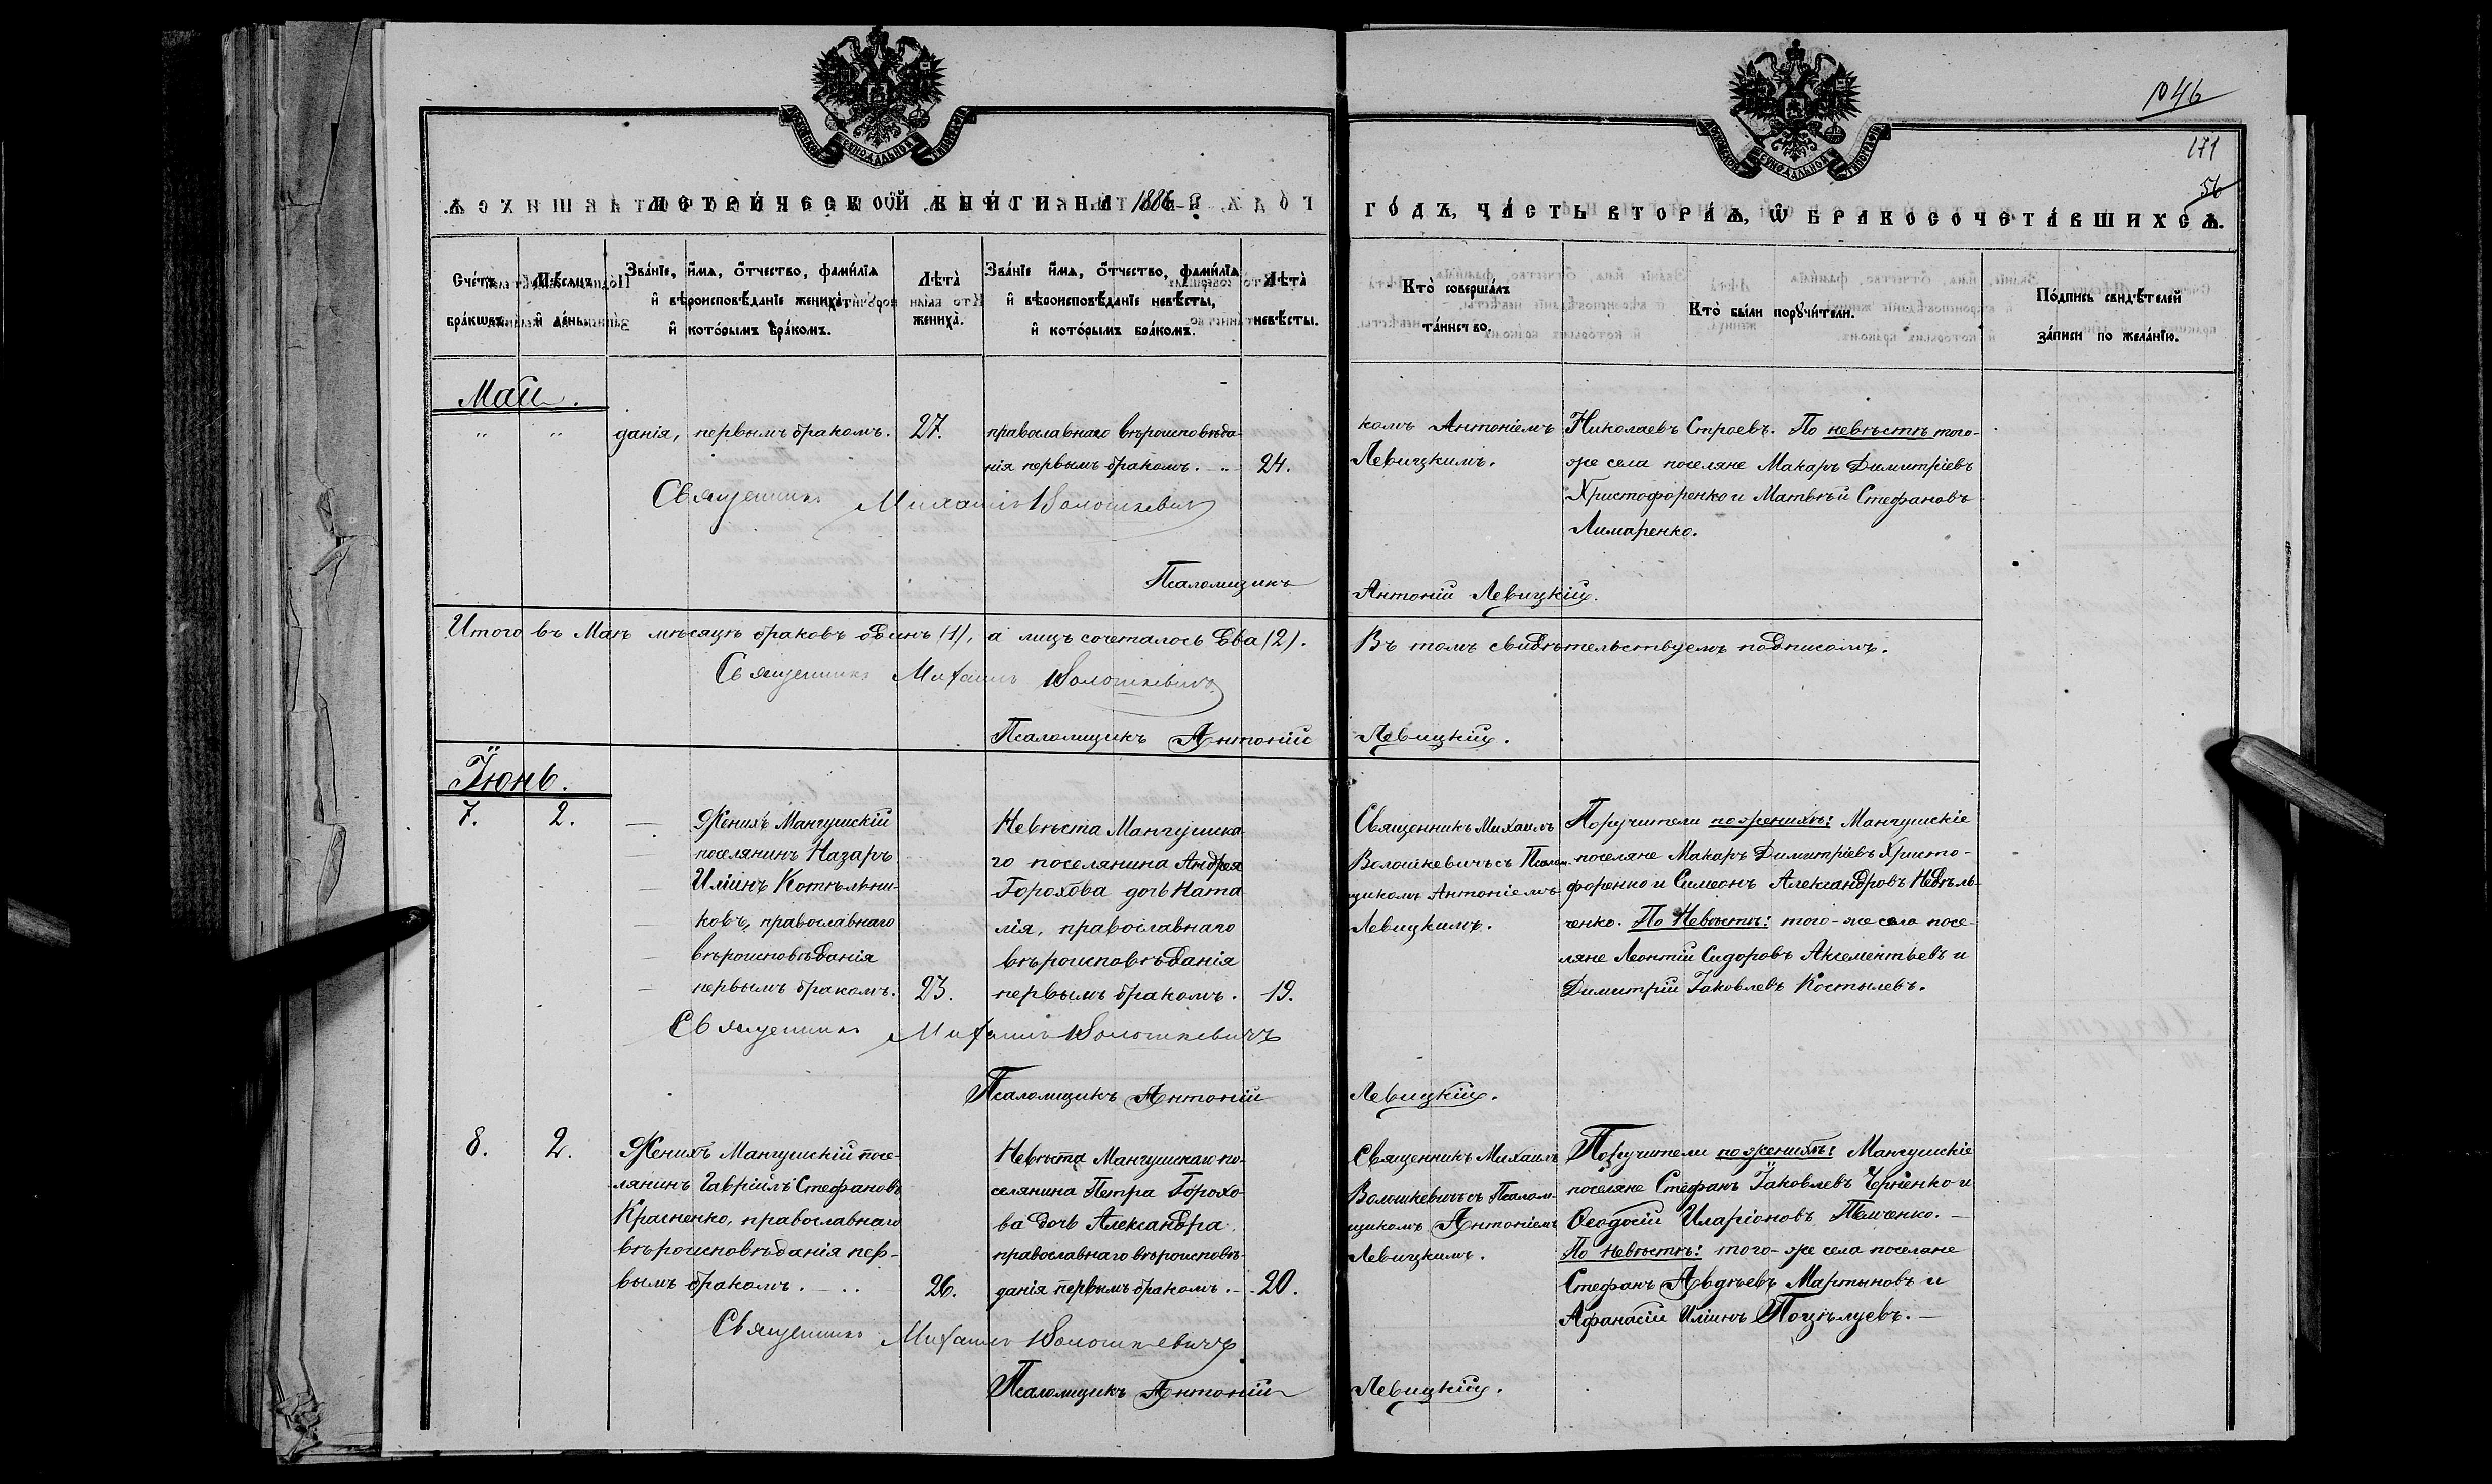 1046
171
56
МЕТРИ́ЧЕСКОЙ КНИ́ГИ НА 1886-й
ГО́ДЪ, ЧА́СТЬ ВТОРА́Ѧ, Ѽ БРАКОСОЧЕТА́ВШИХСѦ.
Сче́тъ бра́кѡвъ.
Мѣ́сѧцъ и҆ де́нь.
Зва́нїе, и҆́мѧ, ѻ҆́тчество, фами́лїѧ
и҆ вѣроисповѣ́данїе жениха̀,
и҆ кото́рымъ бра́комъ.
Лѣта̀
жениха̀.
Зва́нїе и҆́мѧ, ѻ҆́тчество, фами́лїѧ
и҆ вѣроисповѣ́данїе невѣ́сты,
и҆ кото́рымъ бра́комъ.
Лѣта̀
невѣ́сты.
Кто̀ соверша́лъ
та́инство.
Кто̀ бы́ли порꙋчи́тели.
По́дпись свидѣ́телей
за́писи по жела́нїю.
Май.
" "
данія, первымъ бракомъ. 27.
православнаго вѣроисповѣда-
нія первымъ бракомъ. 24.
комъ Антоніемъ
Левицкимъ.
Николаевъ Строевъ. По невѣстѣ того-
же села поселяне Макаръ Димитріевъ
Христофоренко и Матвѣй Стефановъ
Лимаренко.
Священникъ Михаилъ Волошкевичъ
Псаломщикъ Антоній Левицкій.
Итого въ Маѣ мѣсяцѣ браковъ одинъ (1), а лицъ сочеталось два (2). Въ томъ свидѣтельствуемъ подписомъ.
Священникъ Михаилъ Волошкевичъ
Псаломщикъ Антоній Левицкій.
Іюнь.
7. 2.
Женихъ Мангушскій
поселянинъ Назаръ
Иліинъ Котѣльни-
ковъ, православнаго
вѣроисповѣданія
первымъ бракомъ. 23.
Невѣста Мангушска-
го поселянина Андрея
Горохова дочь Ната-
лія, православнаго
вѣроисповѣданія
первымъ бракомъ. 19.
Священникъ Михаилъ
Волошкевичъ съ Псалом-
щикомъ Антоніемъ
Левицкимъ.
Поручители по женихѣ: Мангушскіе
поселяне Макаръ Димитріевъ Христо-
форенко и Симеонъ Александровъ Недѣль-
ченко. По Невѣстѣ: того-же села посе-
ляне Леонтій Сидоровъ Аксементьевъ и
Димитрій Іаковлевъ Костылевъ.
Священникъ Михаилъ Волошкевичъ
Псаломщикъ Антоній Левицкій.
8. 2.
Женихъ Мангушскій посе-
лянинъ Гавріилъ Стефановъ
Красненко, православнаго
вѣроисповѣданія пер-
вымъ бракомъ. 26.
Невѣста Мангушскаго по-
селянина Петра Горохо-
ва дочь Александра,
православнаго вѣроисповѣ-
данія первымъ бракомъ. 20.
Священникъ Михаилъ
Волошкевичъ съ Псалом-
щикомъ Антоніемъ
Левицкимъ.
Поручители по женихѣ: Мангушскіе
поселяне Стефанъ Іаковлевъ Черненко и
Ѳеодосій Иларіоновъ
По невѣстѣ: того-же села поселяне
Стефанъ Авдѣевъ Мартыновъ и
Афанасій Иліинъ Поцѣлуевъ.
Священникъ Михаилъ Волошкевичъ
Псаломщикъ Антоній Левицкій.